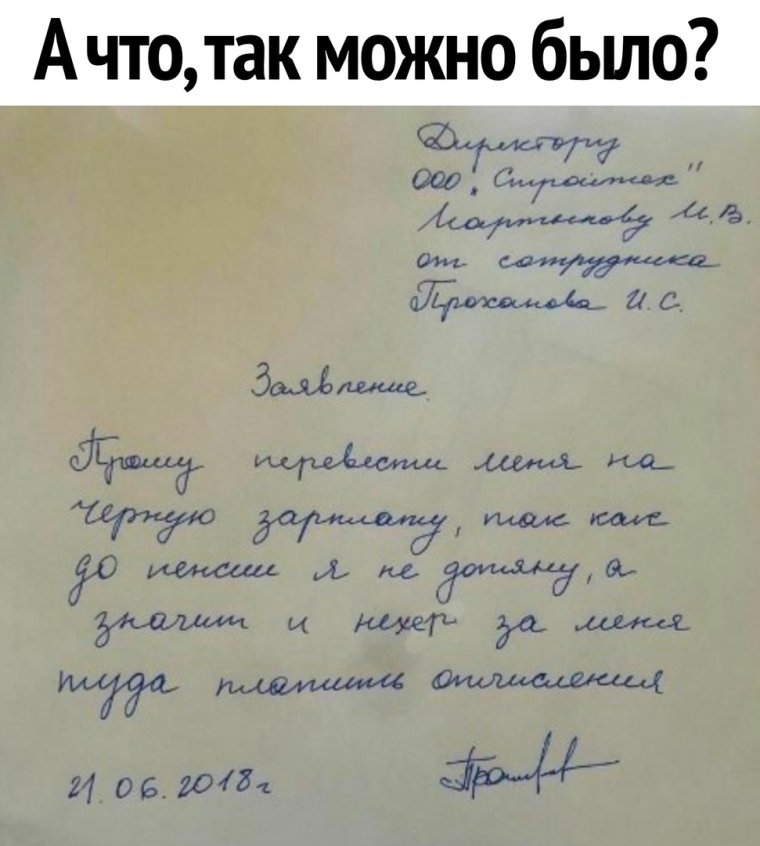 А что, так можно было?
Директору
ООО „Стройтех"
Мартынову И.В.
от сотрудника
Проханова И.С.
Заявление.
Прошу перевести меня на
черную зарплату, так как
до пенсии я не дотяну, а
значит и нехер за меня
туда платить отчисления
21.06.2018г